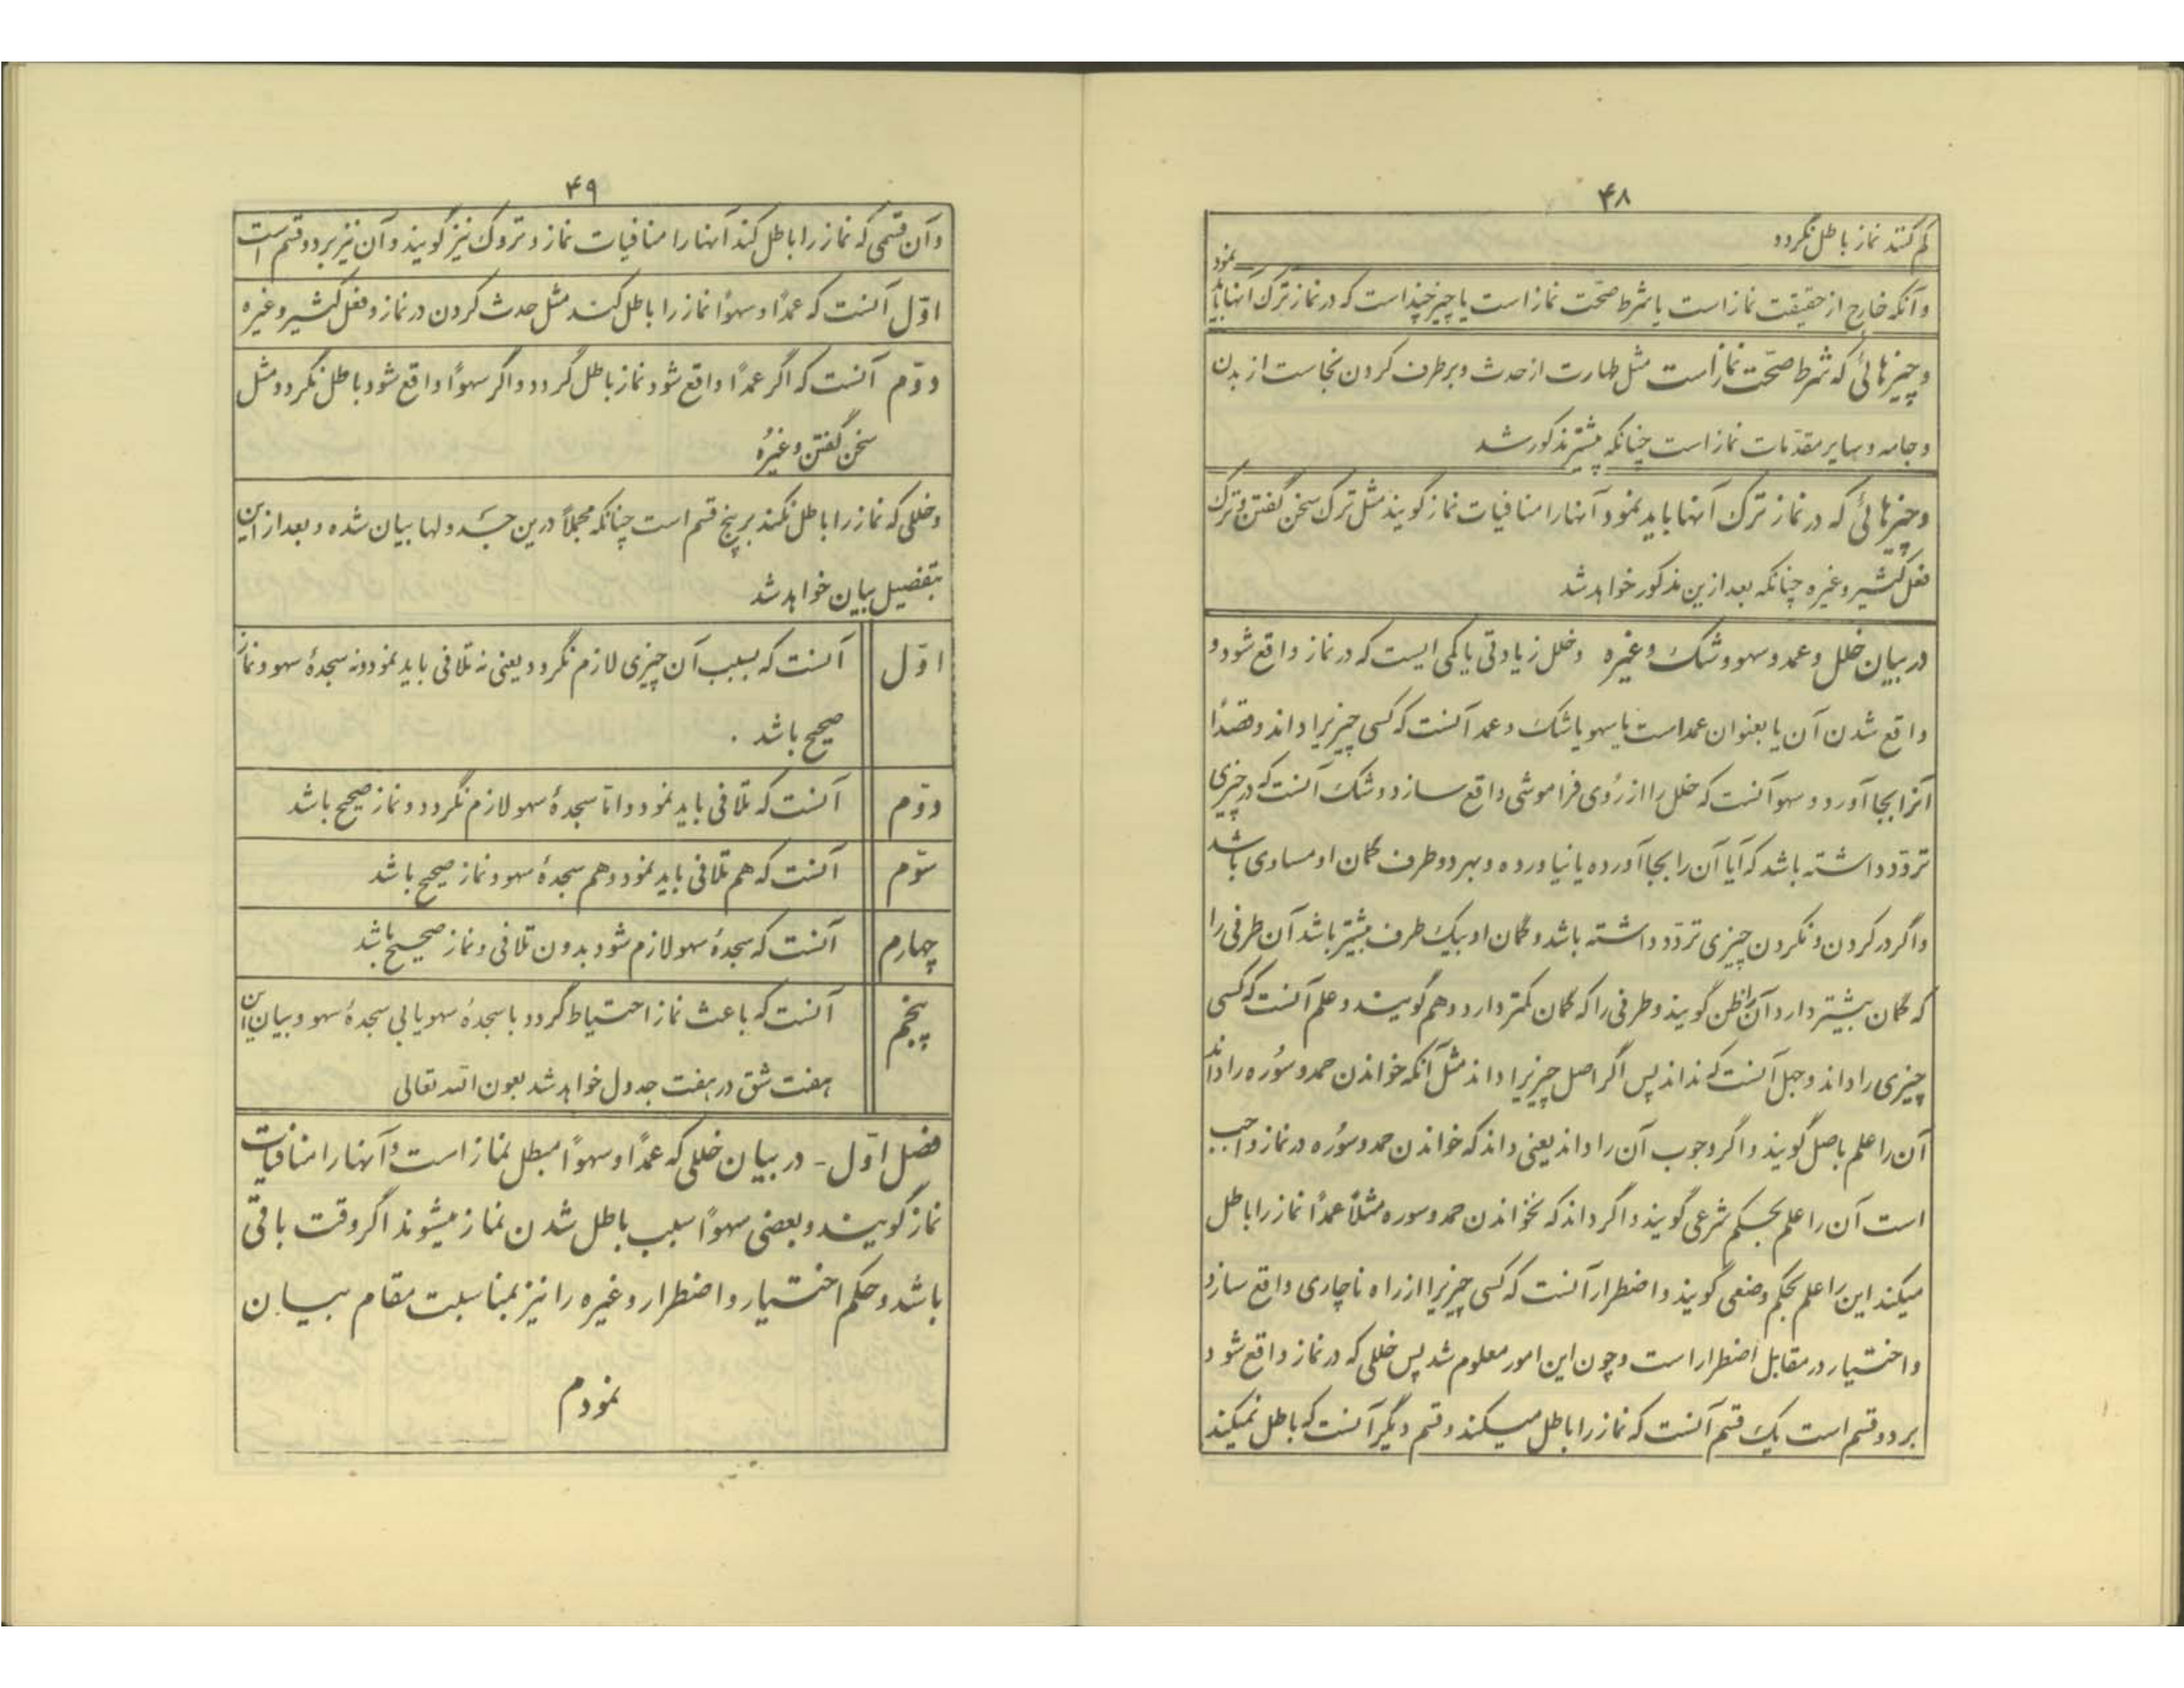 ۴۸
کم کنند نماز باطل نگردد
وآنکه خارج از حقیقت نماز است یا شرط صحّت نماز است یا چیز چند است که در نماز ترک آنها باید نمود
و چیزهائی که شرط صحّت نماز است مثل طهارت از حدث و برطرف کردن نجاست از بدن
و جامه و سایر مقدّمات نماز است چنانکه پیشتر مذکور شد
و چیزهائی که در نماز ترک آنها باید نمود آنها را منافیات نماز گویند مثل ترک سخن گفتن و ترک
فعل کثیر و غیره چنانکه بعد ازین مذکور خواهد شد
در بیان خلل و عمد و سهو و شک و غیره و خلل زیادتی یا کمی ایست که در نماز واقع شود و
واقع شدن آن یا بعنوان عمد است یا سهو یا شک و عمد آنست که کسی چیزیرا داند و قصداً
آنرا بجا آورد و سهو آنست که خلل را از رُوی فراموشی واقع سازد و شک آنست که در چیزی
تردّد داشته باشد که آیا آن را بجا آورده یا نیاورده و بهر دو طرف گمان او مساوی باشد
و اگر در کردن و نکردن چیزی تردّد داشته باشد و گمان او بیک طرف بیشتر باشد آن طرفی را
که گمان بیشتر دارد آن را ظن گویند و طرفی را که گمان کمتر دارد وهم گویند و علم آنست که کسی
چیزی را داند و جهل آنست که نداند پس اگر اصل چیزیرا داند مثل آنکه خواندن حمد و سُوره را داند
آن را علم باصل گویند و اگر وجوب آن را داند یعنی داند که خواندن حمد و سُوره در نماز واجب
است آن را علم بحکم شرعی گویند و اگر داند که نخواندن حمد و سوره مثلاً عمداً نماز را باطل
میکند این را علم بحکم وضعی گویند و اضطرار آنست که کسی چیزیرا از راه ناچاری واقع سازد
و اختیار در مقابل اضطرار است و چون این امور معلوم شد پس خللی که در نماز واقع شود
بر دو قسم است یک قسم آنست که نماز را باطل میکند و قسم دیگر آنست که باطل نمیکند
۴۹
و آن قسمی که نماز را باطل کند آنها را منافیات نماز و تروک نیز گویند و آن نیز بر دو قسم است
اوّل آنست که عمداً و سهواً نماز را باطل کند مثل حدث کردن در نماز و فعل کثیر و غیره
دوّم آنست که اگر عمداً واقع شود نماز باطل گردد و اگر سهواً واقع شود باطل نگردد مثل
سخن گفتن و غیرُه
و خللی که نماز را باطل نکند بر پنج قسم است چنانکه مجملاً درین جدولها بیان شده و بعد از این
بتفصیل بیان خواهد شد
اوّل آنست که بسبب آن چیزی لازم نگردد یعنی نه تلافی باید نمود و نه سجدهٔ سهو و نماز
صحیح باشد .
دوّم آنست که تلافی باید نمود و امّا سجدهٔ سهو لازم نگردد و نماز صحیح باشد
سوّم آنست که هم تلافی باید نمود و هم سجدهٔ سهو و نماز صحیح باشد
چهارم آنست که سجدهٔ سهو لازم شود بدون تلافی و نماز صحیح باشد
پنجم آنست که باعث نماز احتیاط گردد با سجدهٔ سهو یا بی سجدهٔ سهو و بیان این
هفت شق در هفت جدول خواهد شد بعون الله تعالی
فصل اوّل - در بیان خللی که عمداً و سهواً مبطل نماز است و آنها را منافیات
نماز گویند و بعضی سهواً سبب باطل شدن نماز میشوند اگر وقت باقی
باشد و حکم اختیار و اضطرار و غیره را نیز بمناسبت مقام بیان
نمودم